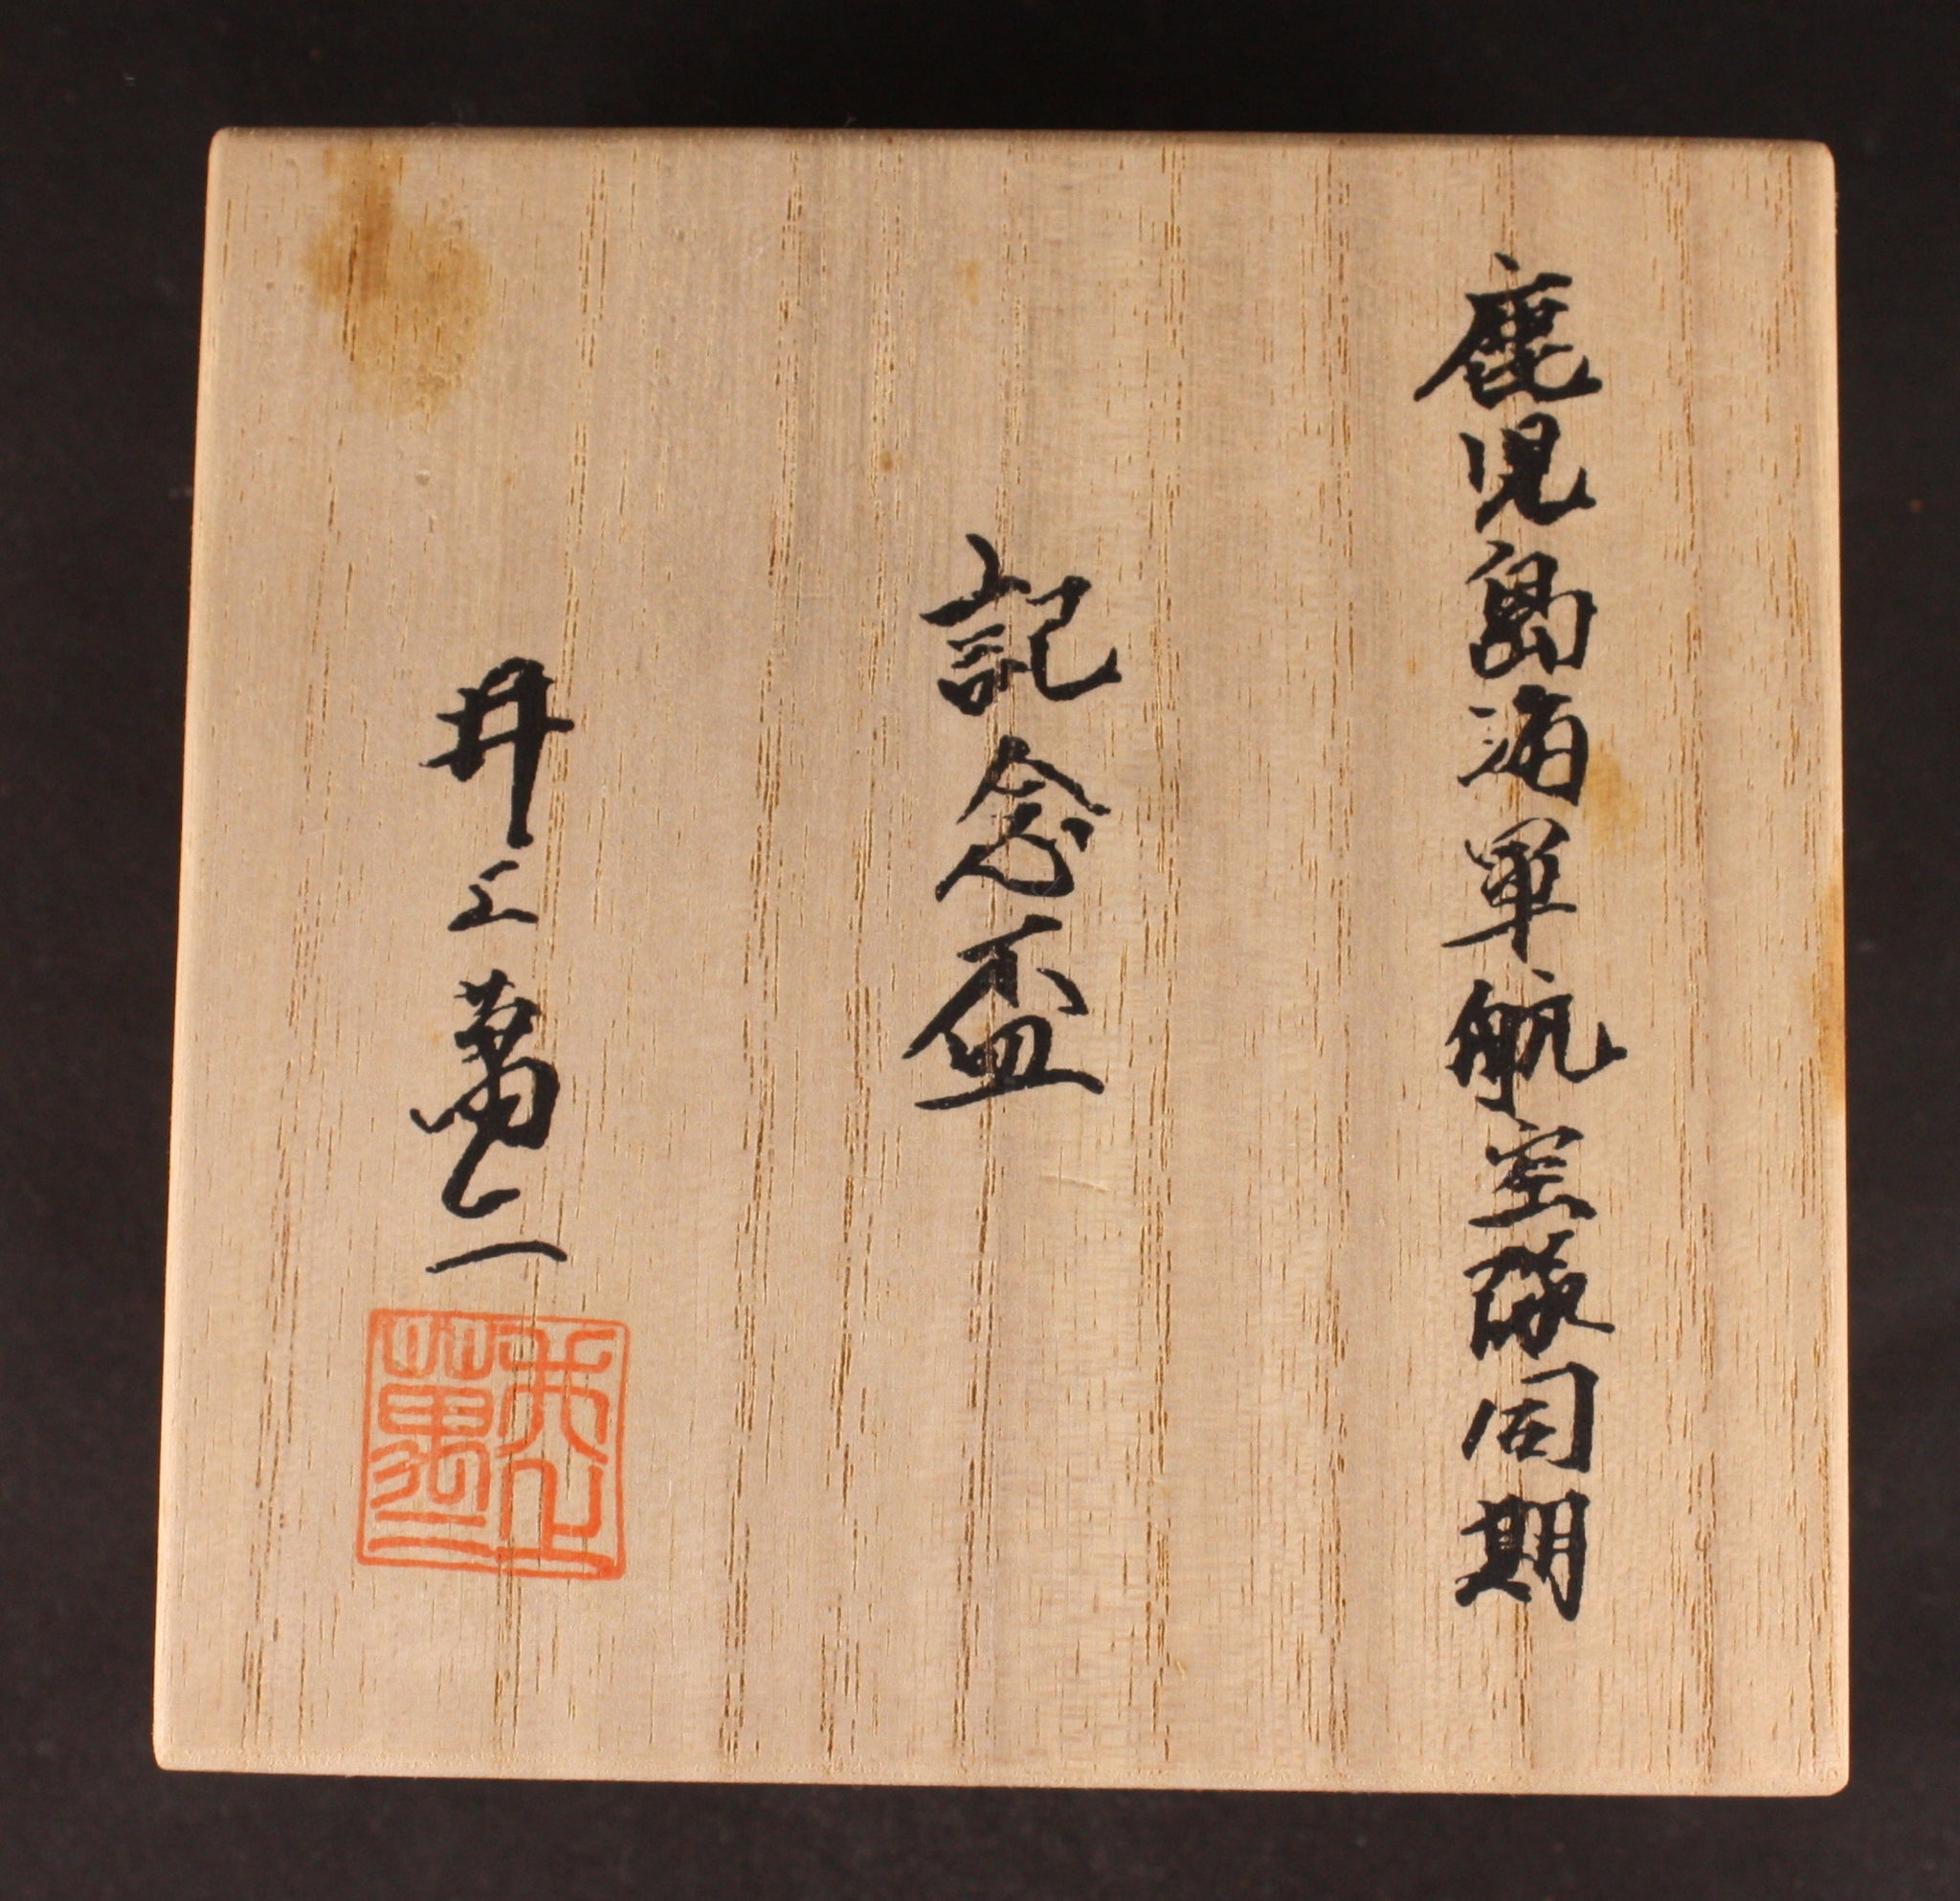 鹿児島海軍航空隊同期
記念盃
井上萬二
井上萬二